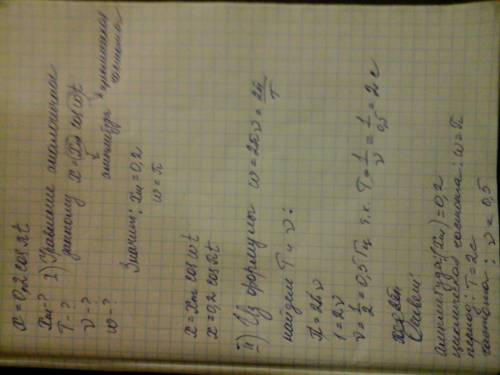 x = 0,2 cos πt
xm - ?
T - ?
ν - ?
ω - ?
I) Уравнение аналогичное
данному x = xm cos ωt
амплитуда
циклическая
Значит: xm = 0,2
ω = π
x = xm cos ωt
x = 0,2 cos πt
II) Из формулы ω = 2πν = 2π/T
найдем T и ν:
π = 2πν
1 = 2ν
ν = 1/2 = 0,5 Гц т.к. T = 1/ν = 1/0,5 = 2 с
Ответ:
амплитуда (xm) = 0,2
циклическая частота: ω = π
период: T = 2с
частота: ν = 0,5